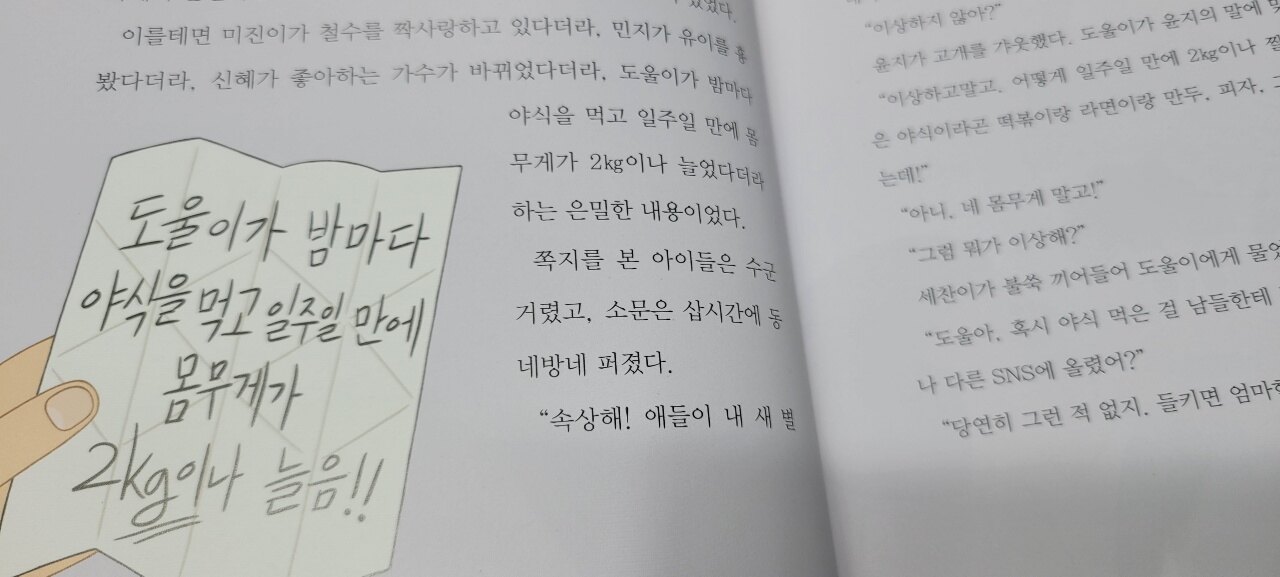 있었다.
이를테면 미진이가 철수를 짝사랑하고 있다더라, 민지가 유이를 흉
봤다더라, 신혜가 좋아하는 가수가 바뀌었다더라, 도울이가 밤마다
야식을 먹고 일주일 만에 몸
무게가 2kg이나 늘었다더라
하는 은밀한 내용이었다.
쪽지를 본 아이들은 수군
거렸고, 소문은 삽시간에 동
네방네 퍼졌다.
“속상해! 애들이 내 새 별
도울이가 밤마다
야식을 먹고 일주일 만에
몸무게가
2kg이나 늘음!!
“이상하지 않아?”
윤지가 고개를 갸웃했다. 도울이가 윤지의 말에
“이상하고말고. 어떻게 일주일 만에 2kg이나
은 야식이라곤 떡볶이랑 라면이랑 만두, 피자,
는데!”
“아니, 네 몸무게 말고!”
“그럼 뭐가 이상해?”
세찬이가 불쑥 끼어들어 도울이에게
“도울아, 혹시 야식 먹은 걸 남들한테
나 다른 SNS에 올렸어?”
“당연히 그런 적 없지. 들키면